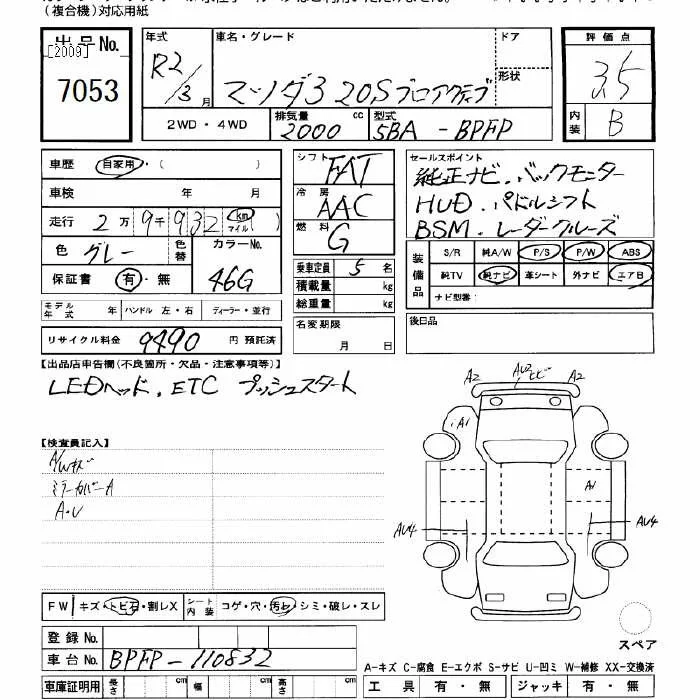 (複合機)対応用紙
出品No.
[2009]
7053
年式
R2/3月
車名・グレード
マツダ3 20Sプロアクティブ
ドア
形状
2WD・4WD
排気量 2000 cc
型式 5BA-BPFP
評価点
3.5
内装 B
車歴 自家用・( )
車検 年 月
走行 2万9千932 km マイル
色 グレー
色替
カラーNo. 46G
保証書 有・無
モデル年式 年 ハンドル 左・右 ディーラー・並行
リサイクル料金 9490 円 預託済
シフト FAT
冷房 AAC
燃料 G
乗車定員 5 名
積載量 kg
総重量 kg
名変期限
月 日
セールスポイント
純正ナビ.バックモニター
HUD.パドルシフト
BSM.レーダークルーズ
装備品
S/R 純A/W P/S P/W ABS
純TV 純ナビ 革シート 外ナビ エアB
ナビ型番:
後日品
【出品店申告欄(不良箇所・欠品・注意事項等)】
LEDヘッド.ETC プッシュスタート
【検査員記入】
A/Wキズ
ミラーカバーA
A・U
A2
A2
A1
A1
AU4
AU4
FW キズ・トビ石・割レX シート内装 コゲ・穴・汚レ・シミ・破レ・スレ
登録No.
車台No. BPFP-110832
車庫証明用 長さ cm 幅 cm 高さ cm
スペア
A-キズ C-腐食 E-エクボ S-サビ U-凹ミ W-補修 XX-交換済
工具 有・無 ジャッキ 有・無